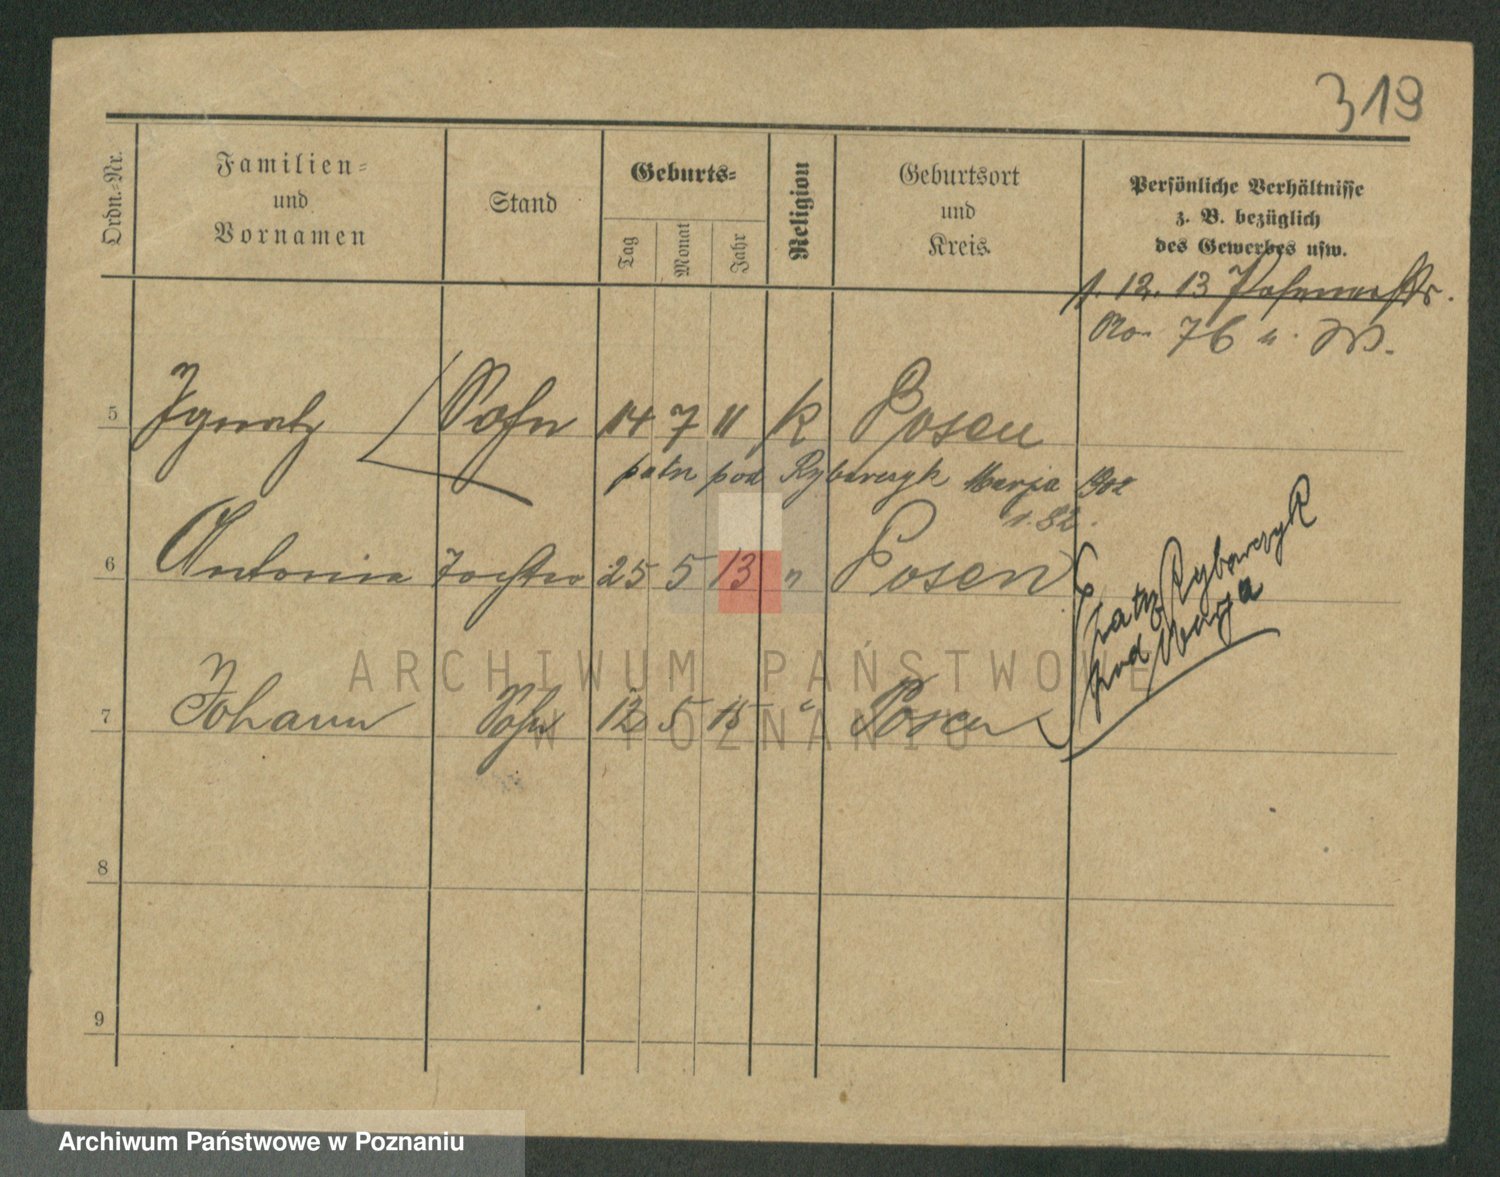 319
Ordn.-Nr.
Familien-
und
Vornamen
Stand
Geburts-
Tag
Monat
Jahr
Religion
Geburtsort
und
Kreis.
Persönliche Verhältnisse
z. B. bezüglich
des Gewerbes usw.
1. 12. 13
No. 76 u.
5 Ignatz Sohn 14 7 11 K Posen
patrz pod Rybarczyk Marja 1902
1.82.
6 Antonia Tochter 25 5 13 " Posen
patrz Rybarczyk
pod Marja
7 Johann Sohn 12 5 15 " Posen
8
9
ARCHIWUM PAŃSTWOWE
W POZNANIU
Archiwum Państwowe w Poznaniu